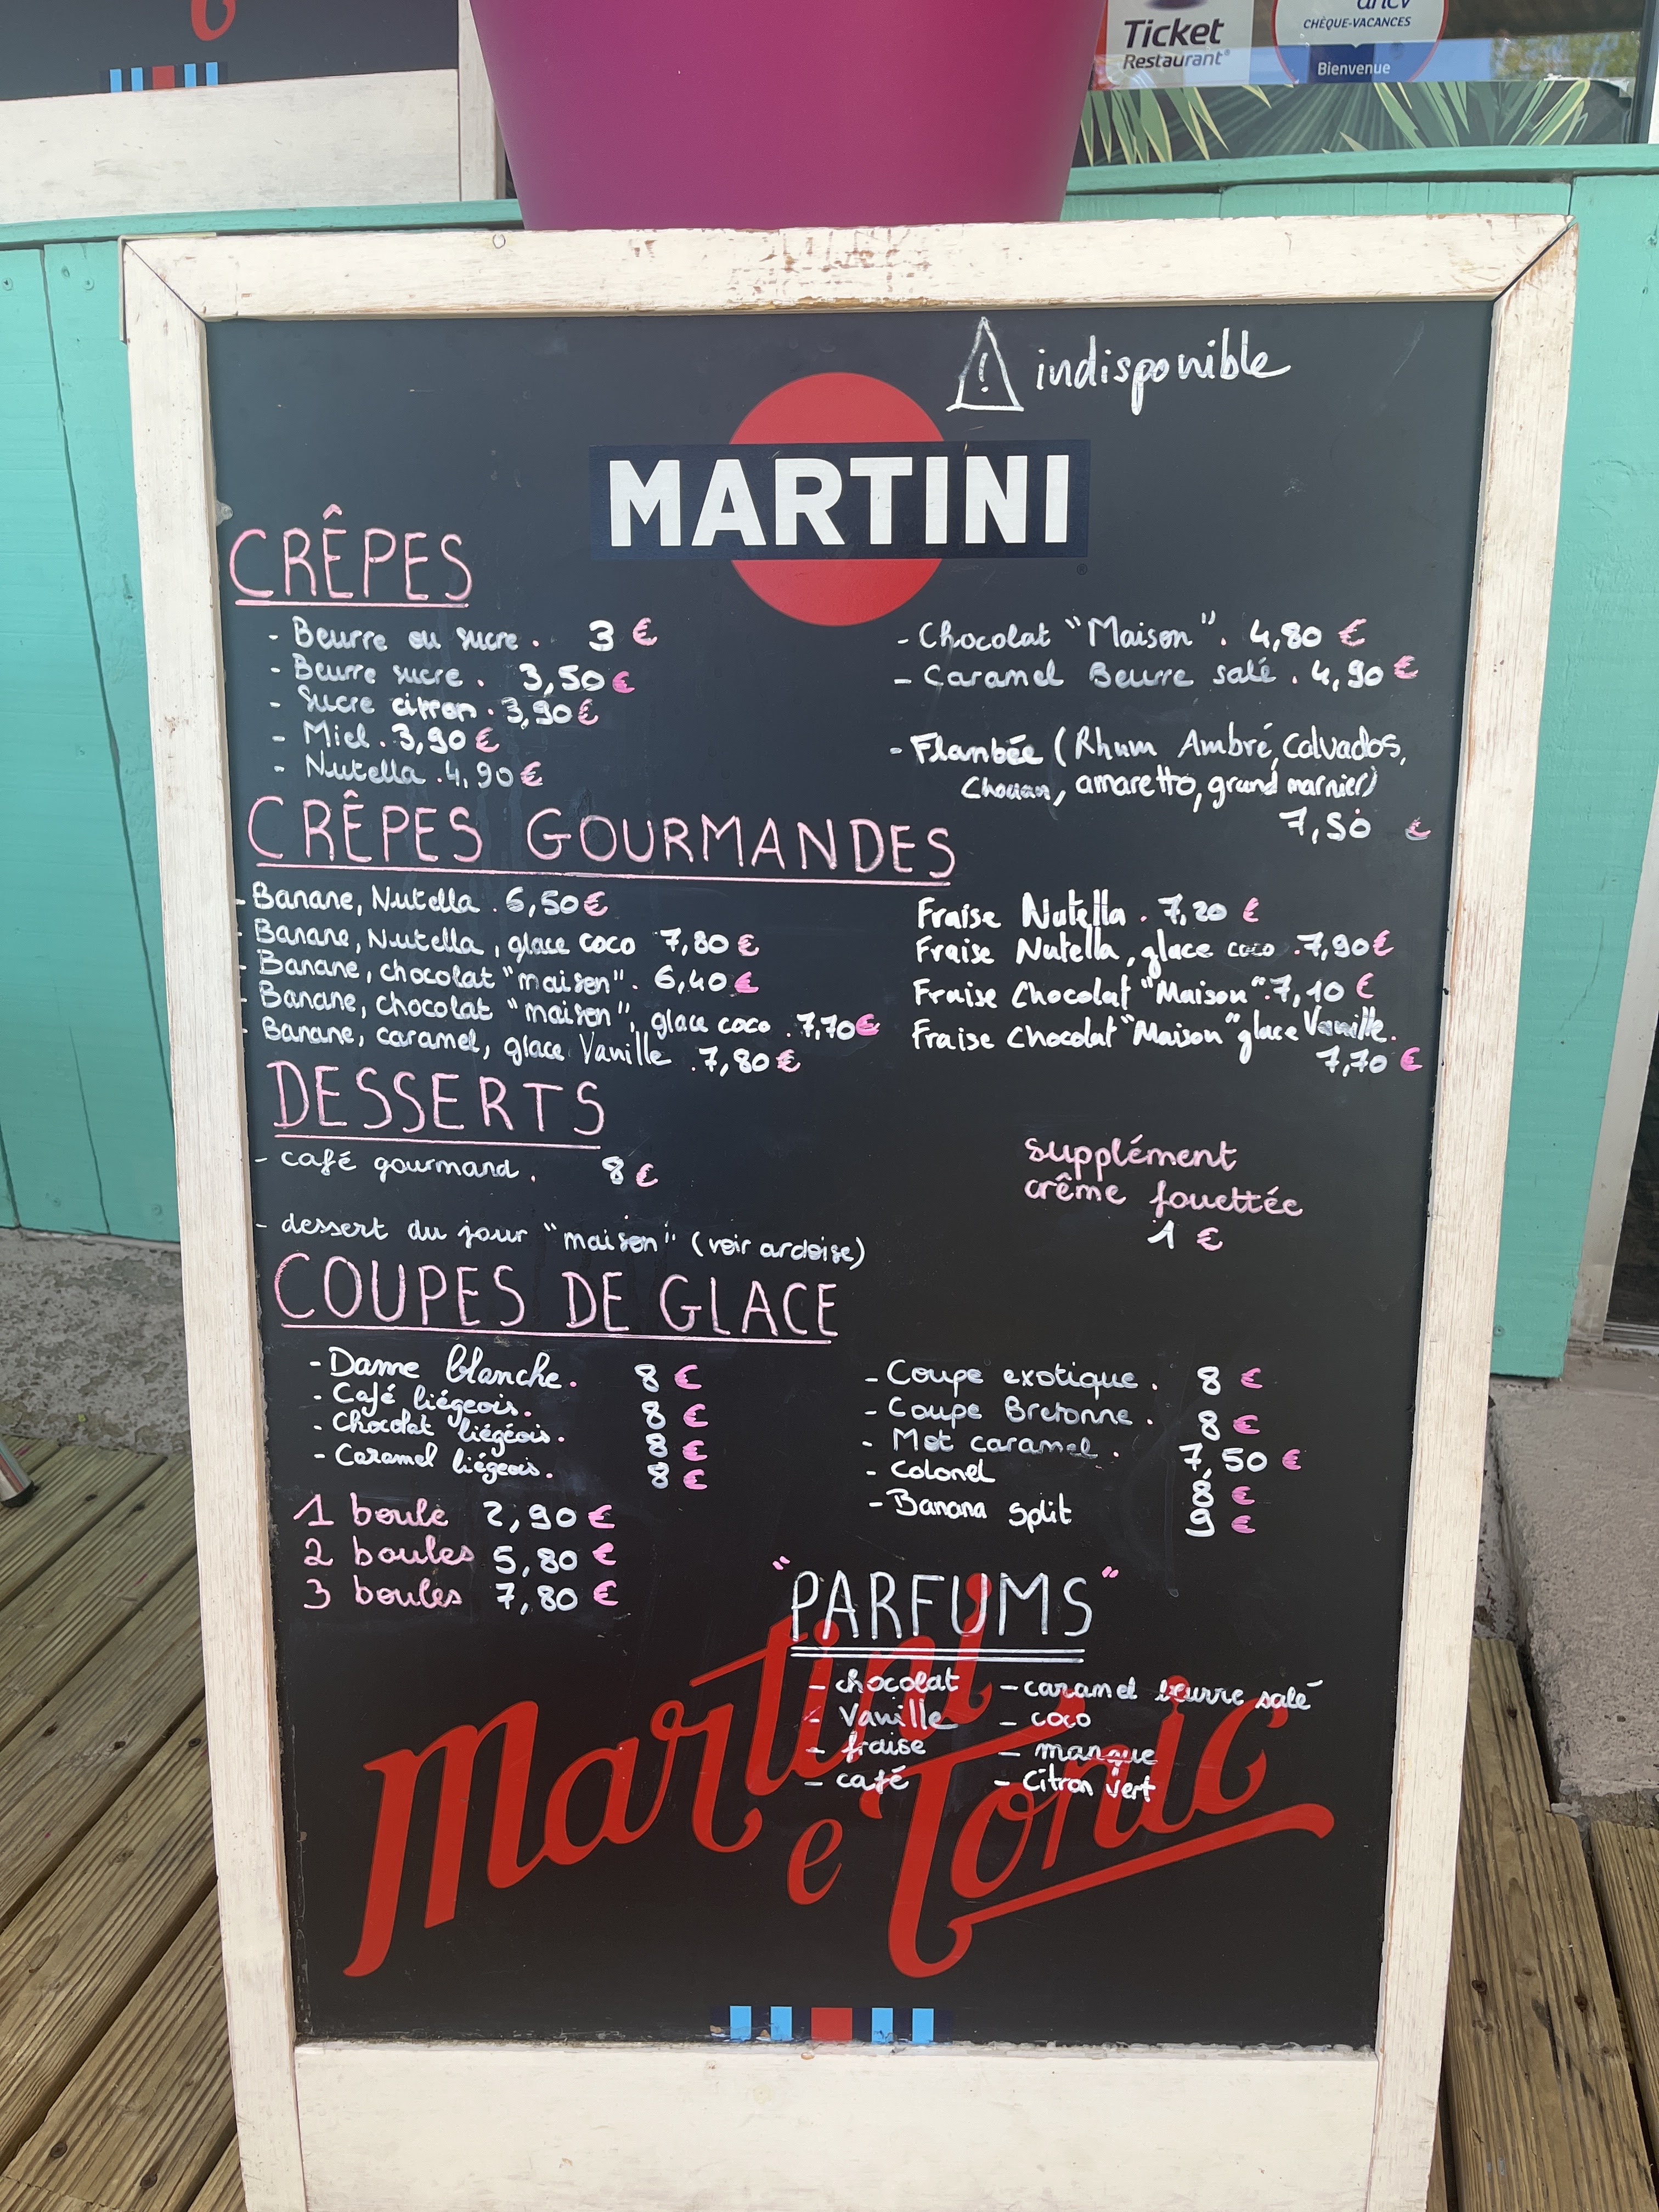 Ticket
Restaurant
ancv
CHÈQUE-VACANCES
Bienvenue
indisponible
MARTINI
CRÊPES
- Beurre ou sucre . 3 €
- Beurre sucre . 3,50 €
- Sucre citron . 3,90 €
- Miel . 3,90 €
- Nutella . 4,90 €
- Chocolat "Maison". 4,80 €
- Caramel Beurre salé . 4,90 €
- Flambée (Rhum Ambré, Calvados,
Chouan, amaretto, grand marnier)
7,50 €
CRÊPES GOURMANDES
- Banane, Nutella . 6,50 €
- Banane, Nutella, glace coco 7,80 €
- Banane, chocolat "maison". 6,40 €
- Banane, chocolat "maison", glace coco . 7,70 €
- Banane, caramel, glace Vanille . 7,80 €
Fraise Nutella . 7,20 €
Fraise Nutella, glace coco . 7,90 €
Fraise Chocolat "Maison". 7,10 €
Fraise Chocolat "Maison" glace Vanille.
7,70 €
DESSERTS
- café gourmand . 8 €
- dessert du jour "maison" (voir ardoise)
supplément
crême fouettée
1 €
COUPES DE GLACE
- Dame blanche. 8 €
- Café liégeois. 8 €
- Chocolat liégéois. 8 €
- Caramel liégeois. 8 €
- Coupe exotique . 8 €
- Coupe Bretonne . 8 €
- Mot caramel . 7,50 €
- Colonel 8 €
- Banana Split 9 €
1 boule 2,90 €
2 boules 5,80 €
3 boules 7,80 €
"PARFUMS"
- chocolat
- Vanille
- fraise
- café
- caramel beurre salé
- coco
- mangue
- Citron vert
Martini
e Tonic